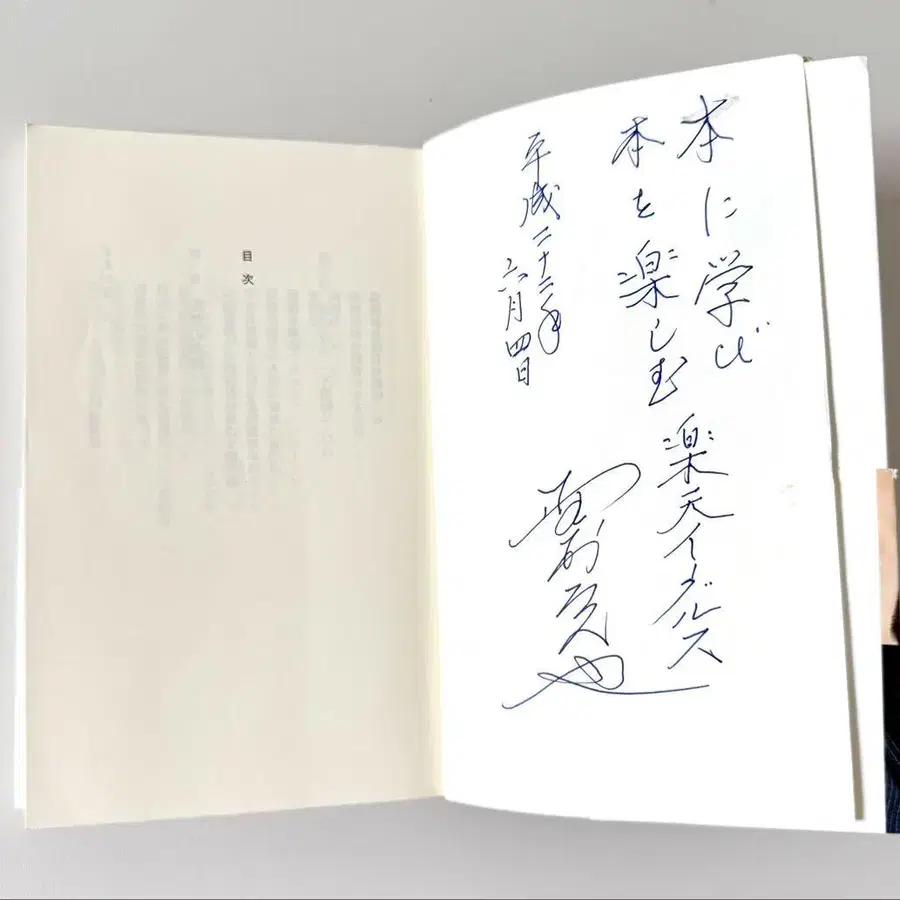 本に学び
本を楽しむ
平成二十二年
六月四日
楽天イーグルス
野村克也
目次